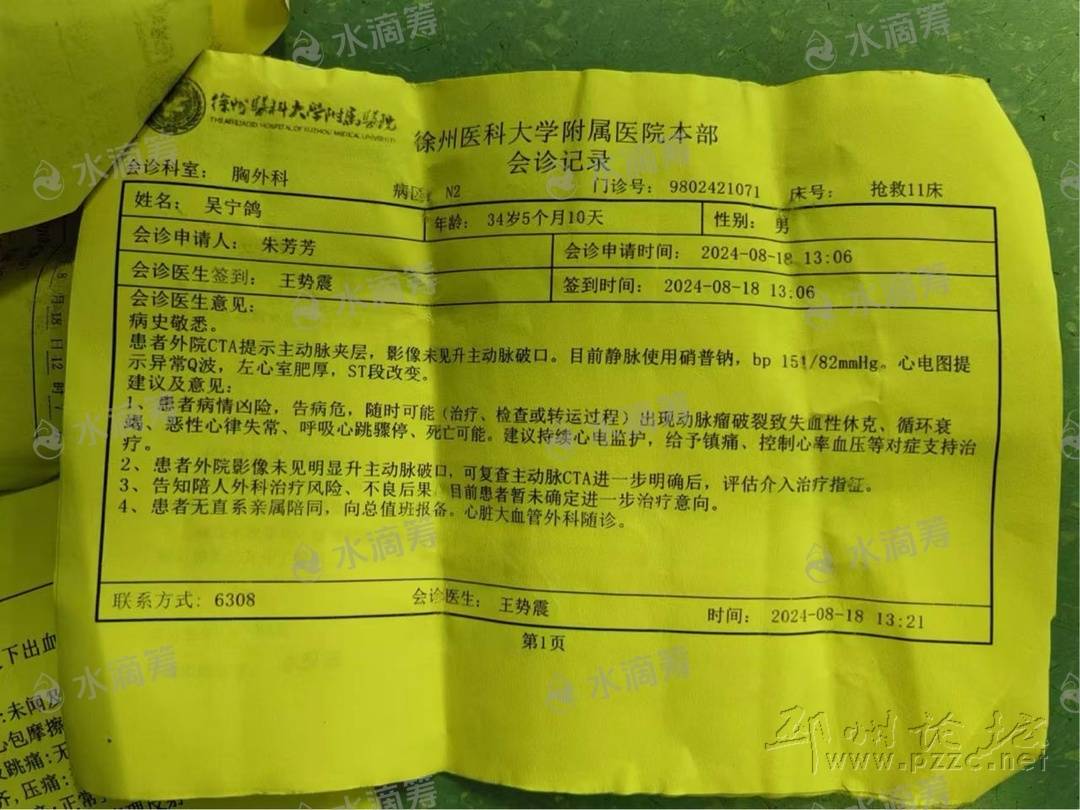 水滴筹
水滴筹
徐州医科大学附属医院
THE AFFILIATED HOSPITAL OF XUZHOU MEDICAL UNIVERSITY
徐州医科大学附属医院本部
会诊记录
会诊科室： 胸外科 病区： N2 门诊号： 9802421071 床号： 抢救11床
姓名： 吴宁鸽 年龄： 34岁5个月10天 性别： 男
会诊申请人： 朱芳芳 会诊申请时间： 2024-08-18 13:06
会诊医生签到： 王势震 签到时间： 2024-08-18 13:06
会诊医生意见：
病史敬悉。
患者外院CTA提示主动脉夹层，影像未见升主动脉破口。目前静脉使用硝普钠，bp 151/82mmHg。心电图提
示异常Q波，左心室肥厚，ST段改变。
建议及意见：
1、患者病情凶险，告病危，随时可能（治疗、检查或转运过程）出现动脉瘤破裂致失血性休克、循环衰
竭、恶性心律失常、呼吸心跳骤停、死亡可能。建议持续心电监护，给予镇痛、控制心率血压等对症支持治
疗。
2、患者外院影像未见明显升主动脉破口，可复查主动脉CTA进一步明确后，评估介入治疗指征。
3、告知陪人外科治疗风险、不良后果，目前患者暂未确定进一步治疗意向。
4、患者无直系亲属陪同，向总值班报备。心脏大血管外科随诊。
联系方式： 6308 会诊医生： 王势震 时间： 2024-08-18 13:21
第1页
8月18日12时
下出血
：未闻及
心包摩擦
跳痛：无
齐，压痛：
水滴筹
水滴筹
水滴筹
水滴筹
水滴筹
水滴筹
水滴筹
水滴筹
水滴筹
邳州论坛
www.pzzc.net